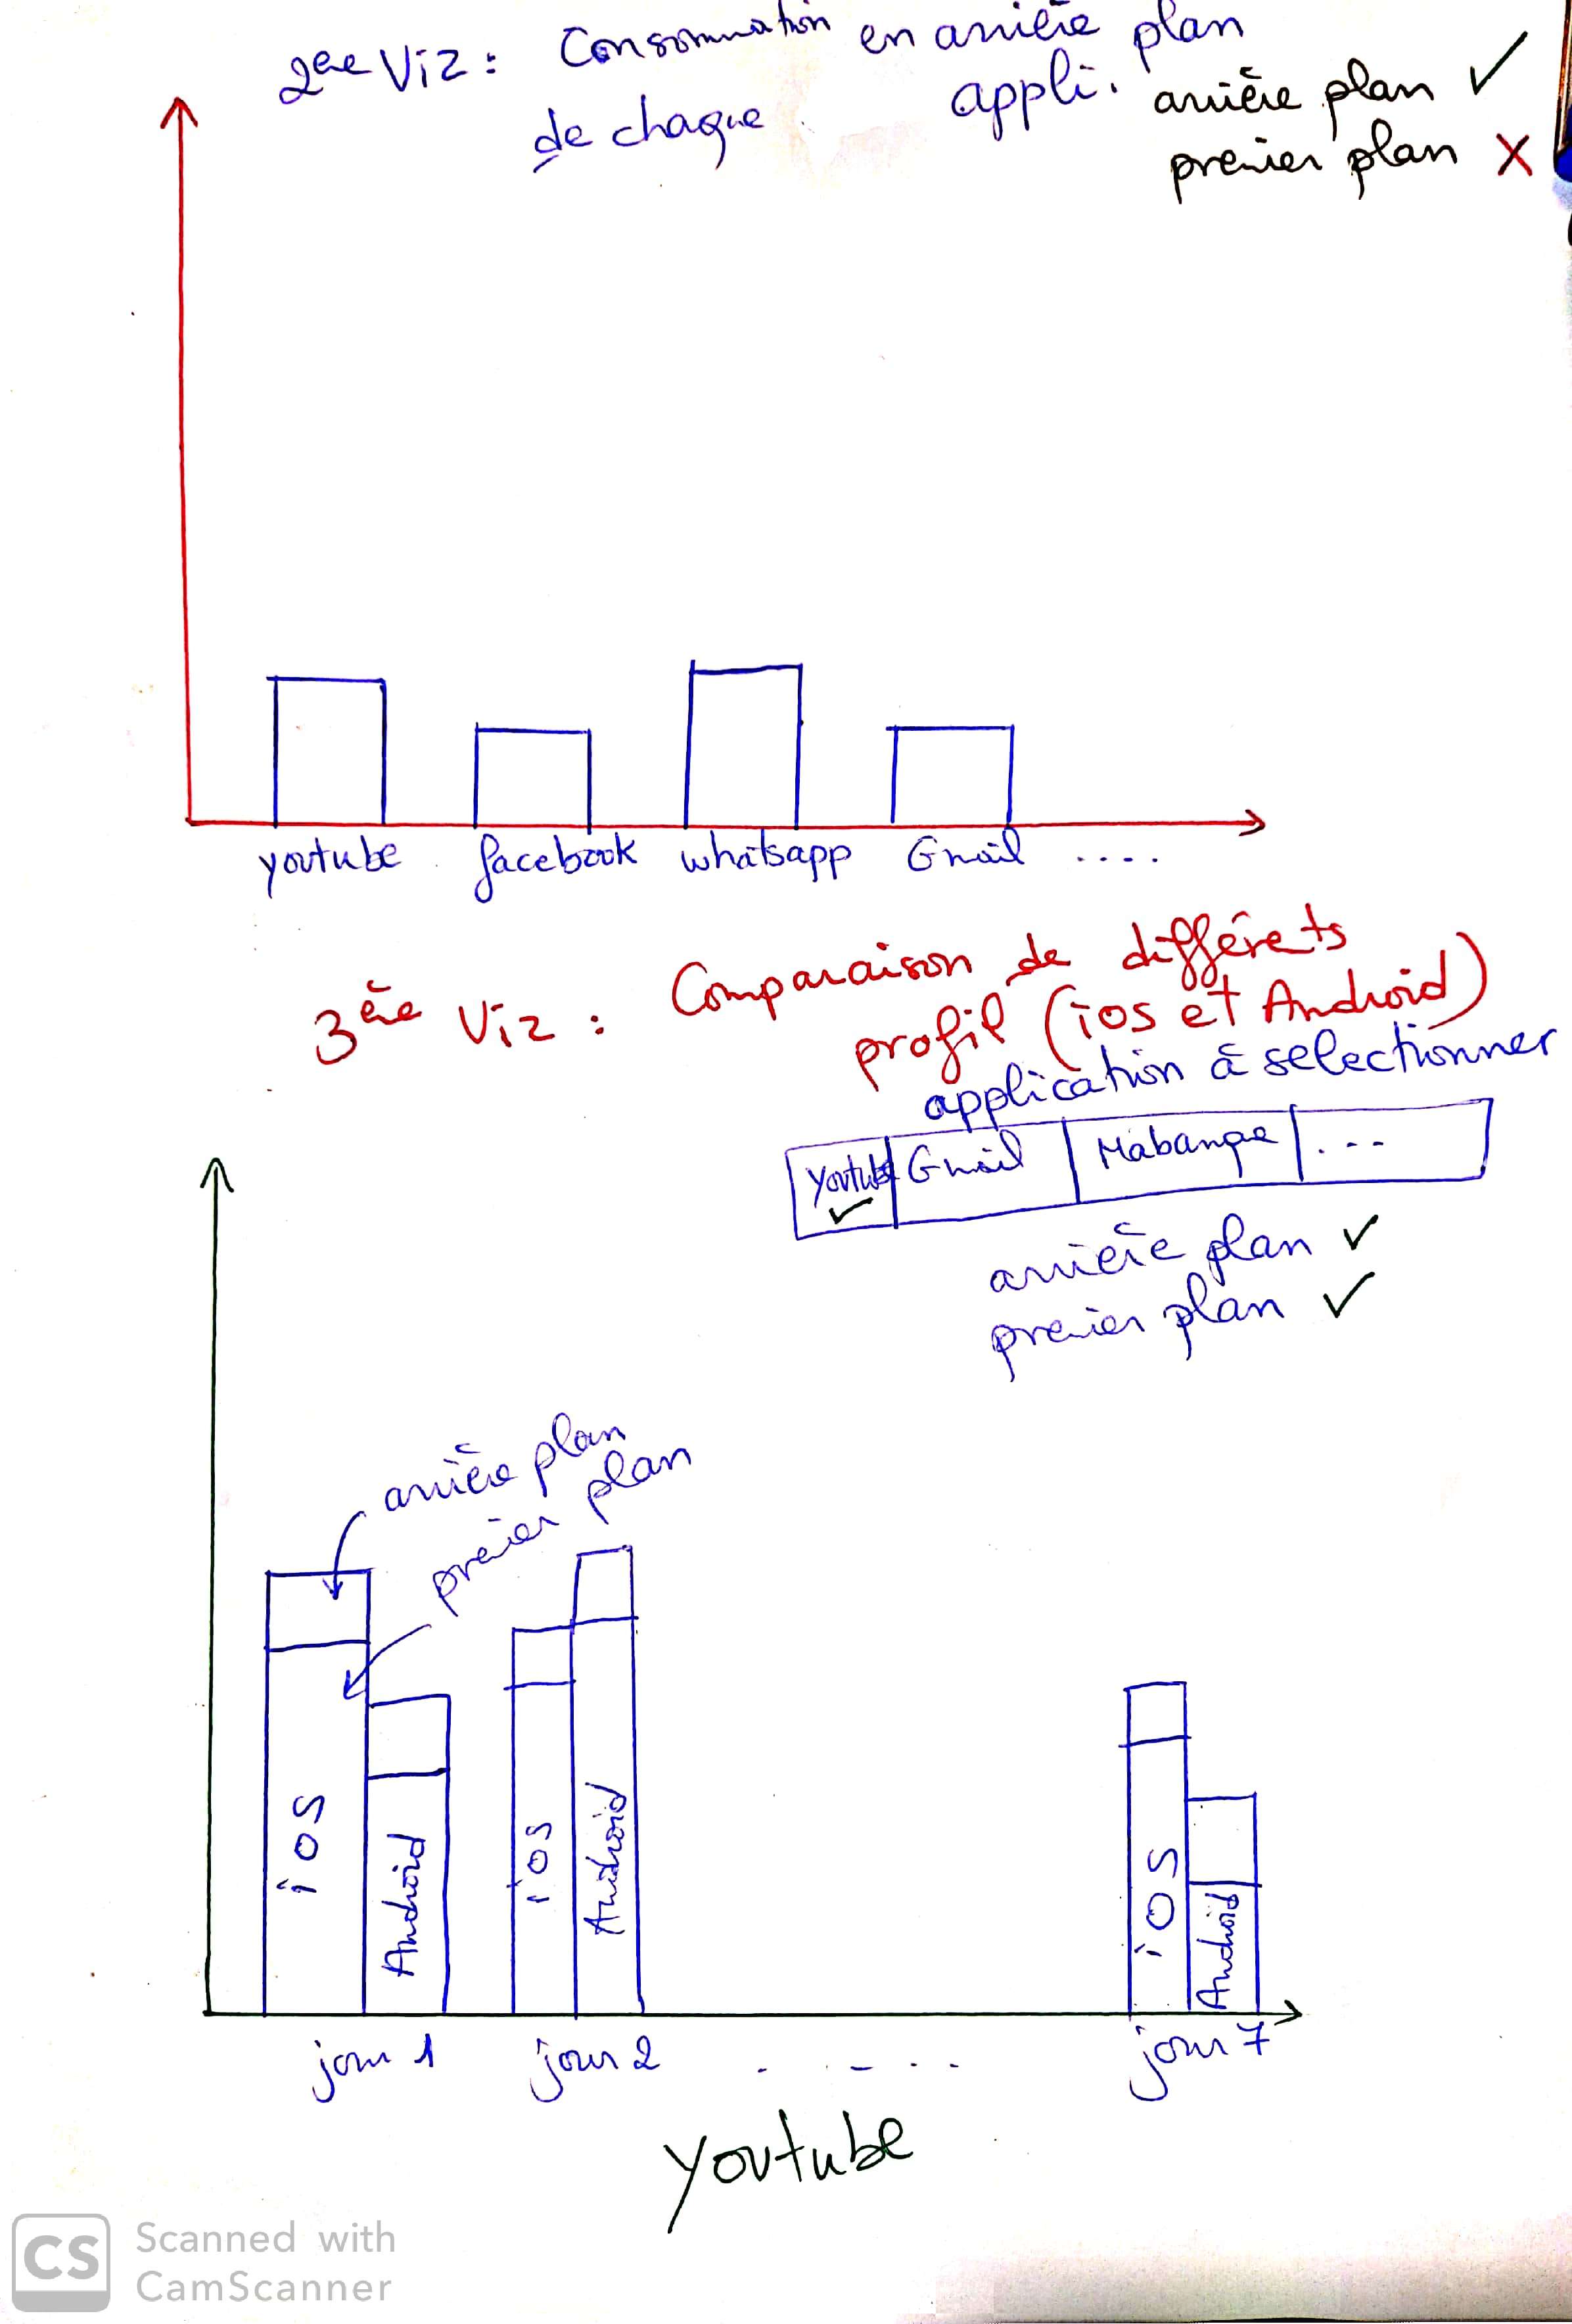 2ère Viz : Consommation en arrière plan
de chaque appli.
arrière plan ✓
premier plan X
youtube facebook whatsapp Gmail ....
3ère Viz : Comparaison de différets
profil (ios et Android)
application à selectionner
Youtube ✓ Gmail Mabanque ...
arrière plan ✓
premier plan ✓
arrière plan
premier plan
ios Android ios Android ios Android
jour 1 jour 2 . - . . jour 7
youtube
CS Scanned with
CamScanner